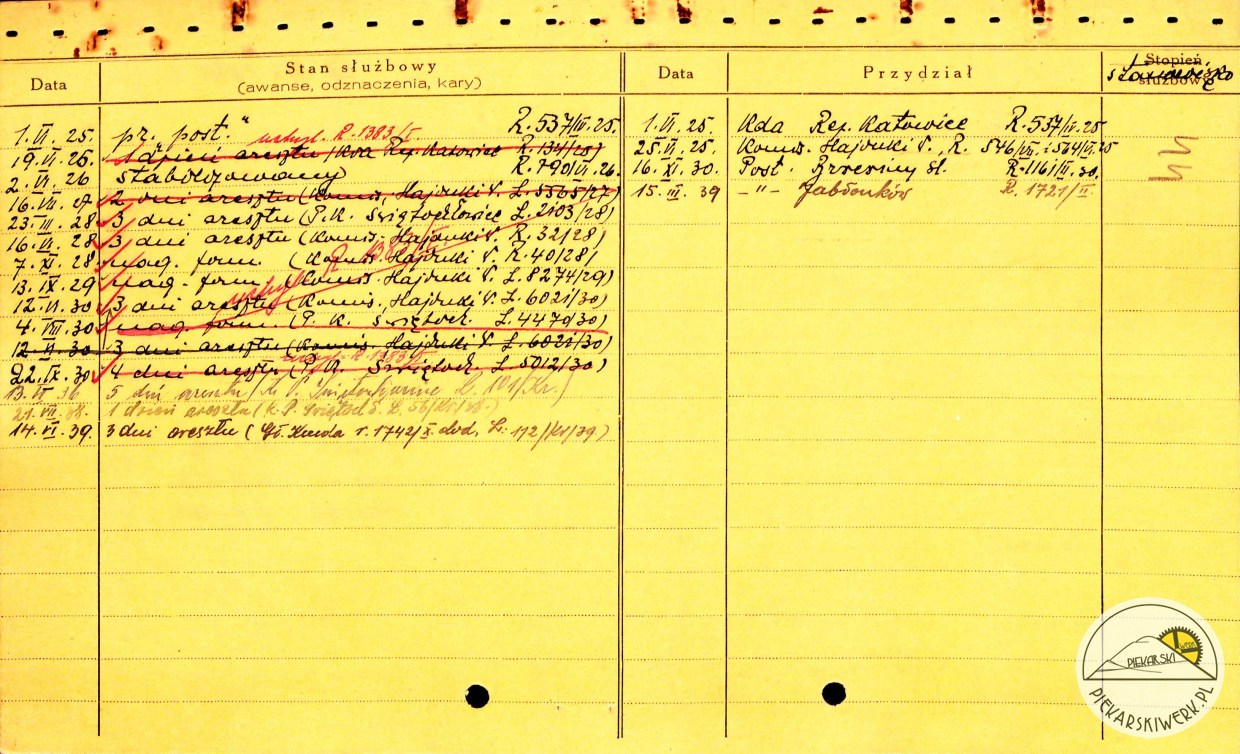 Data
Stan służbowy
(awanse, odznaczenia, kary)
Data
Przydział
Stopień
służbowy
stanowisko
1.VI.25. pr. post." R.537/IV.25.
uchyl. R.1383/I.
19.VI.25. 1 dzień aresztu (Kda Rej. Katowice R.134/25)
2.VI.26 stabilizowany R.790/VI.26.
16.VII.27 2 dni aresztu (Komis. Hajduki N. L.5565/27)
23.III.28 3 dni aresztu (P.K. Świętochłowice L.2103/28)
16.VI.28 3 dni aresztu (Komis. Hajduki N. R.32/28)
7.XI.28 nag. form. (Komis. Hajduki N. R.40/28)
13.IX.29 nag. form. (Komis. Hajduki N. L.8274/29)
uchyl. R.1383/I
12.VI.30 3 dni aresztu (Komis. Hajduki N. L.6021/30)
4.VIII.30 nag. form. (P.K. Świętoch. L.4470/30)
12.VI.30 3 dni aresztu (Komis. Hajduki N. L.6021/30)
uchyl. R.1383/I.
22.IX.30 4 dni aresztu (P.K. Świętoch. L.5012/30)
13. 36 5 dni aresztu (K.P. L. 101/Kr.)
21.VII.38. 1 dzień aresztu (K.P. Świętochł. L. 56/Kr/38.)
14.VI.39. 3 dni aresztu (Gł. Kmda r. 1742/X. dod. L: 112/kr/39)
1.VI.25. Kda Rej. Katowice R.537/IV.25
25.VI.25. Komis. Hajduki N. R. 546/VII i 564/VI.25
16.XI.30. Post. Brzeziny Śl. R.1161/XI.30.
15.III.39 -"- Jabłonków R. 1721/II.
PIEKARSKI
WERK
PIEKARSKIWERK.PL